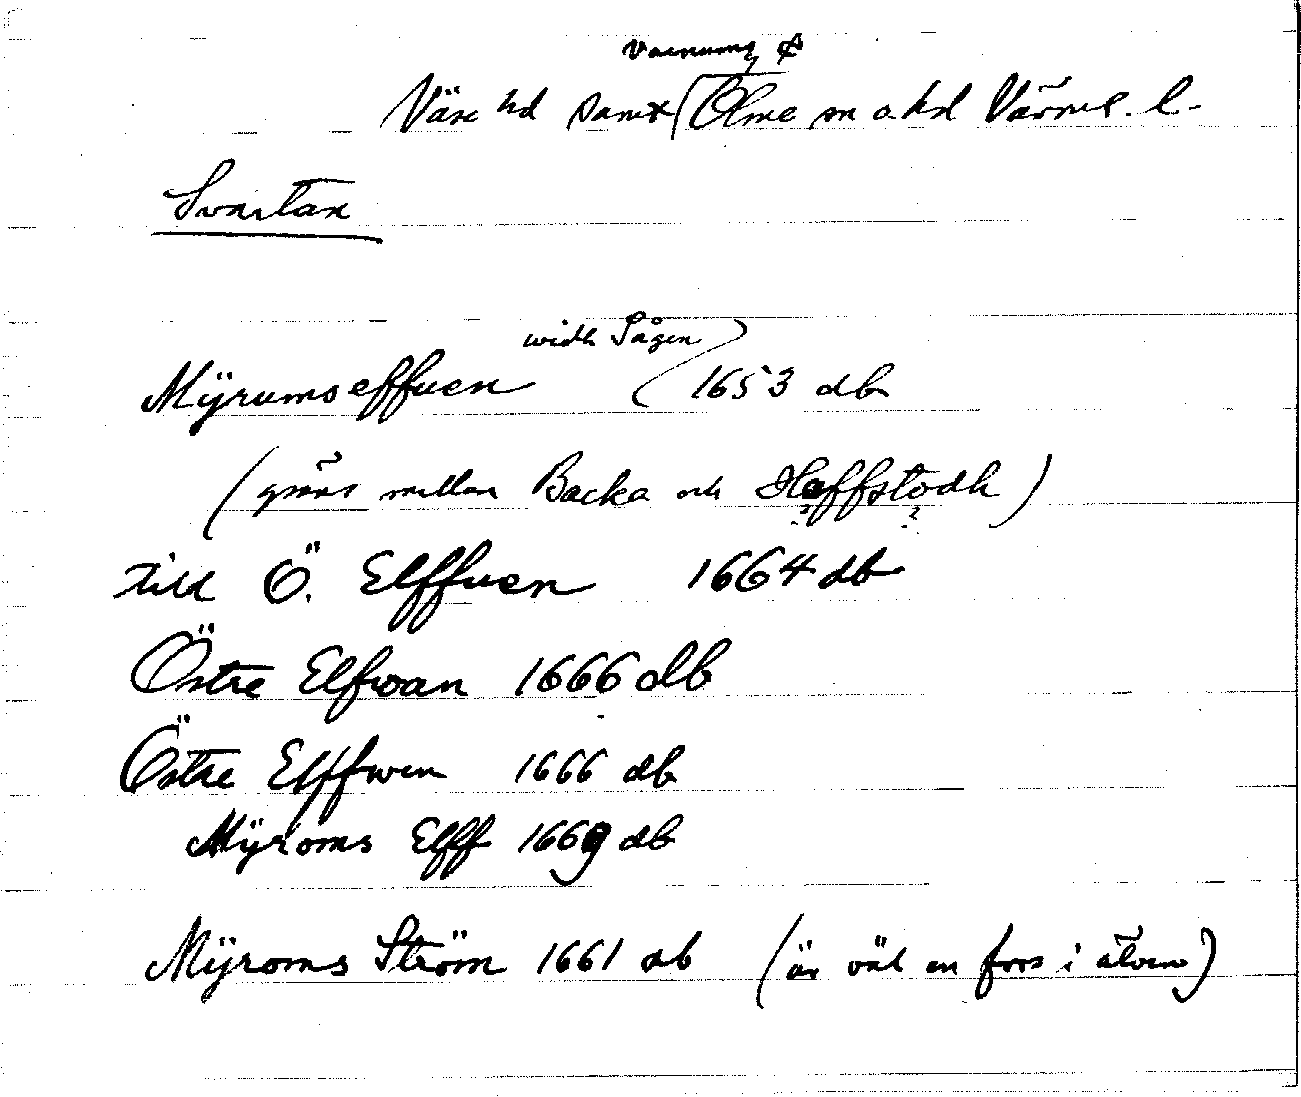 Varnums
Väse hd samt Ölme sn o. hd Värml. l.
Svartån
widh Sågen
Mÿrumseffuen 1653 db
(gräns mellan Backa och Hoffstodh)
till Ö. Elffuen 1664 db
Östre Elfwan 1666 db
Östre Elffwen 1666 db
Mÿroms Elff 1669 db
Mÿroms Ström 1661 db (är väl en fors i älven)